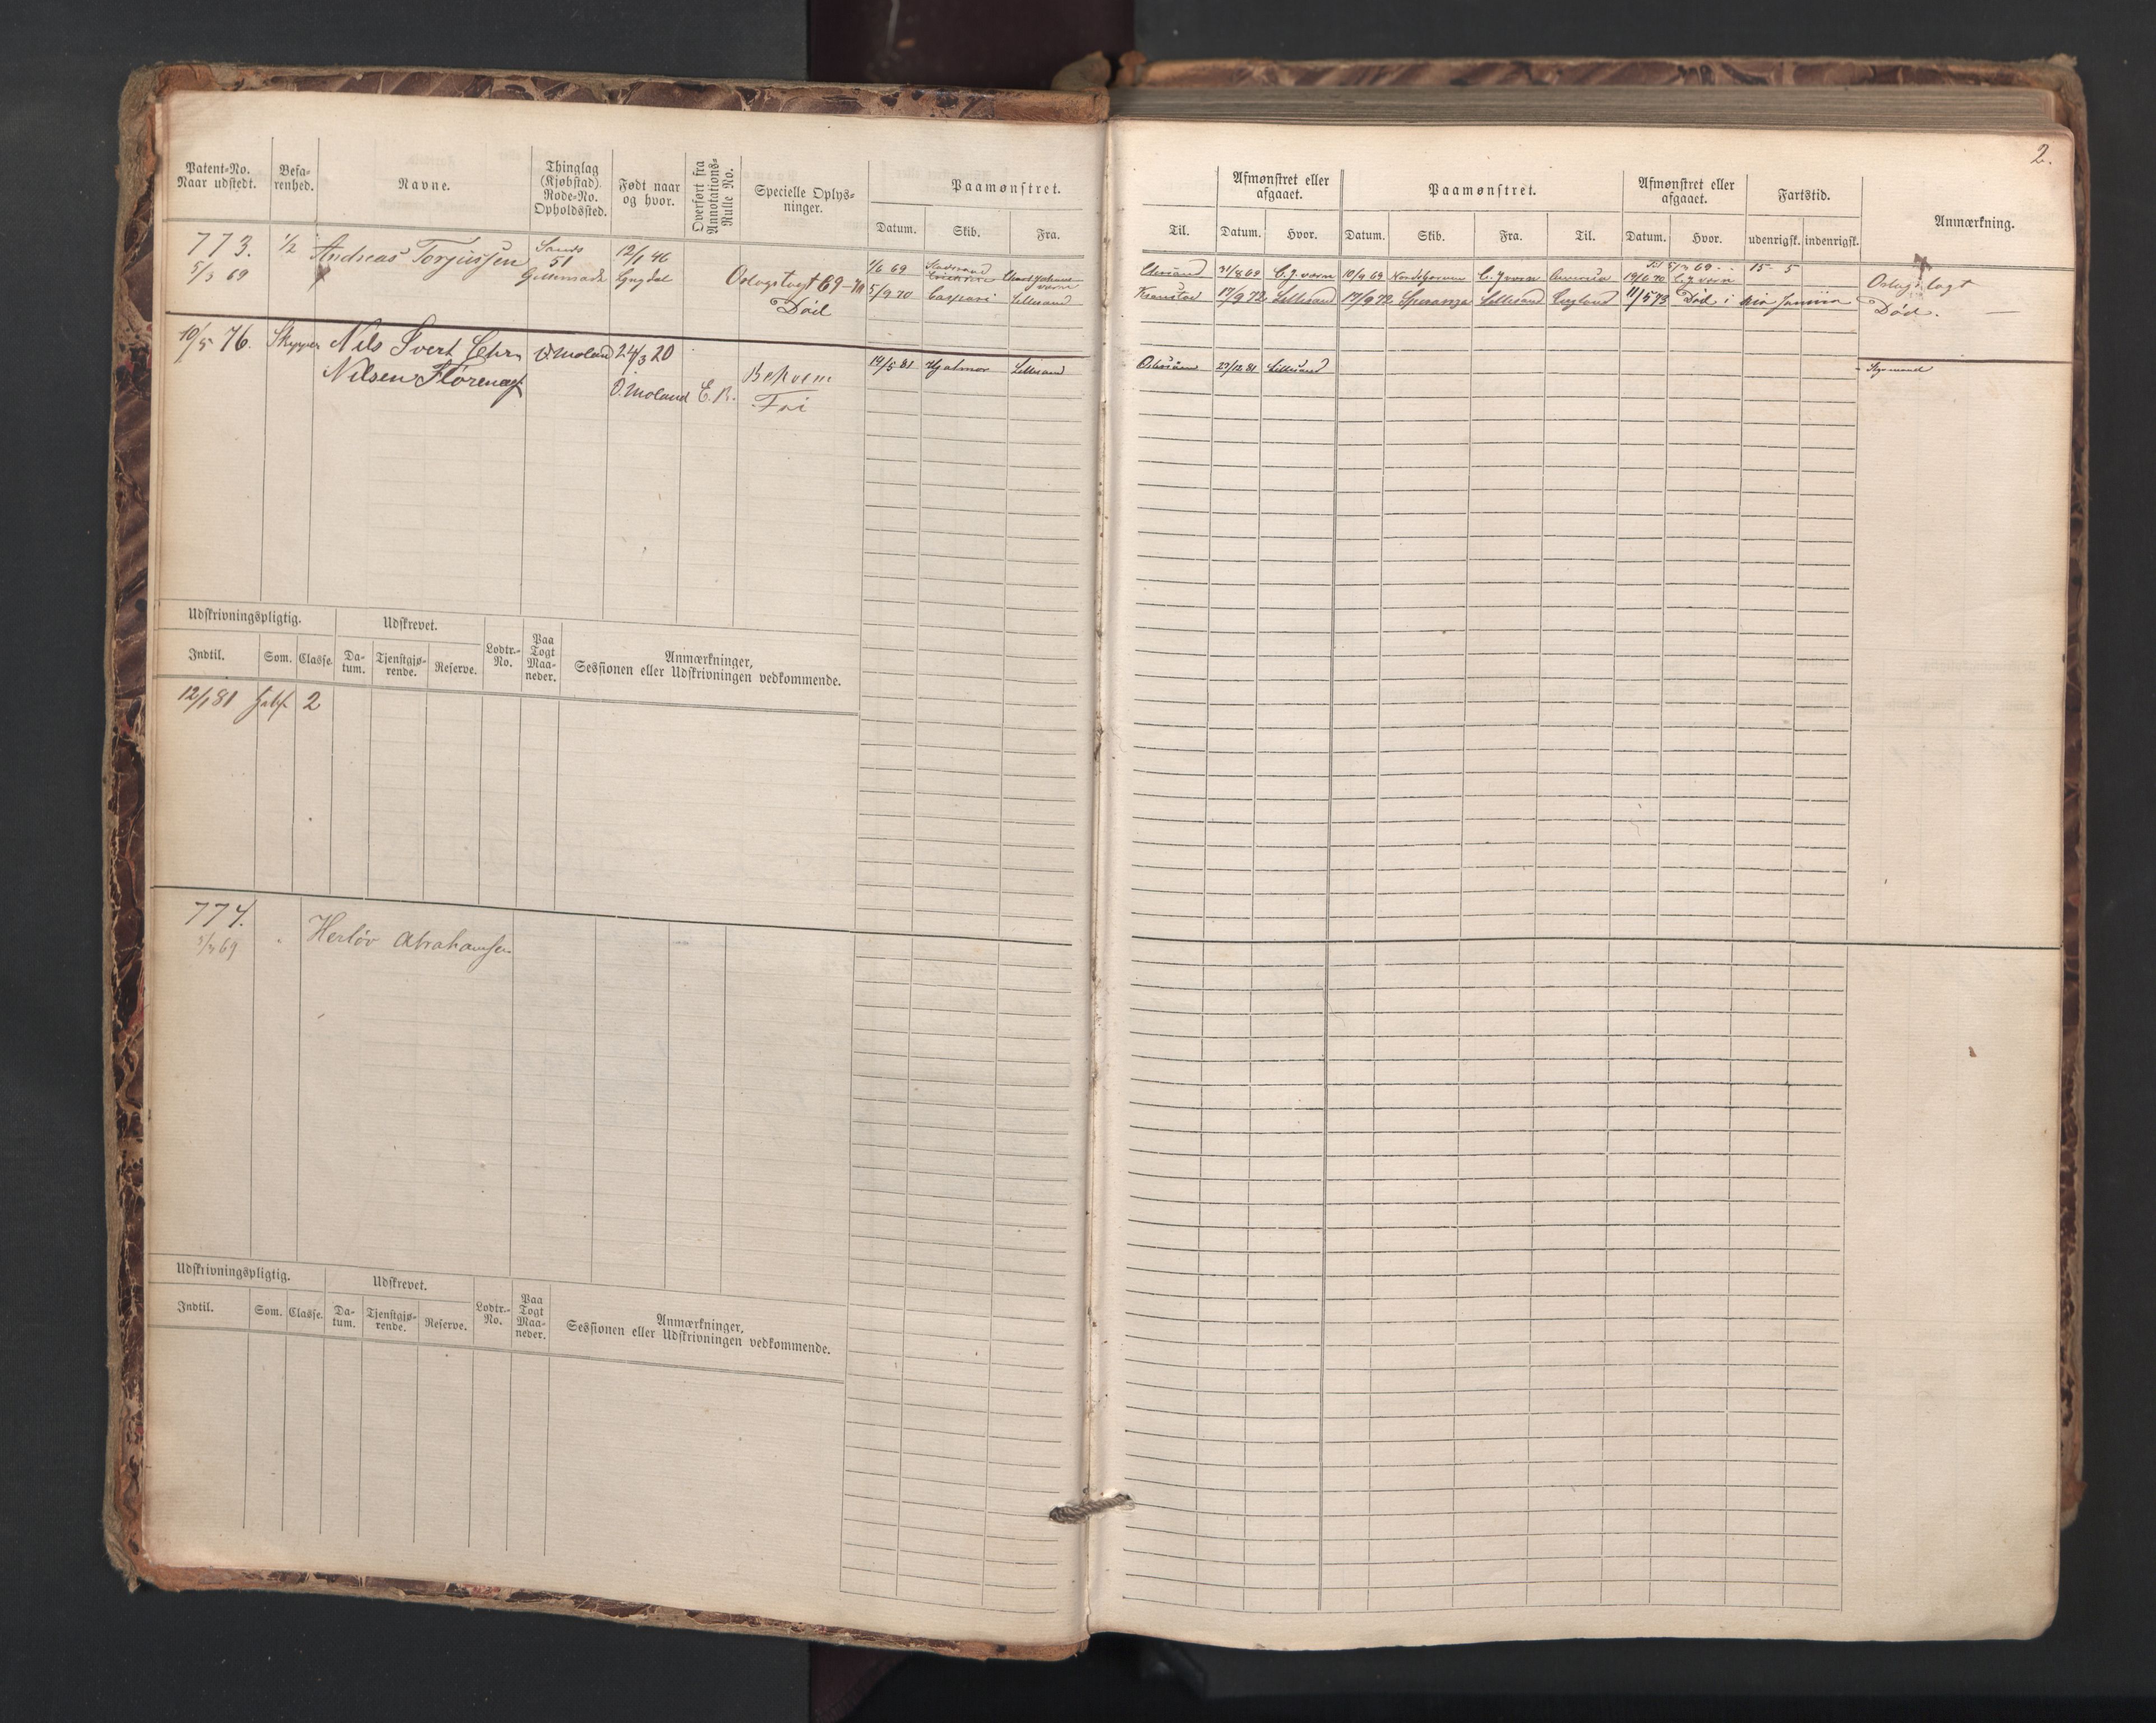 2.
Patent-No. Naar udstedt.
Befa-renhed.
Navne.
Thinglag (Kjøbstad). Rode-No. Opholdssted.
Født naar og hvor.
Overført fra Annotations-Rulle No.
Specielle Oplys-ninger.
Paamønstret.
Datum. Skib. Fra.
Til.
Afmønstret eller afgaaet.
Datum. Hvor.
Paamønstret.
Datum. Skib. Fra. Til.
Afmønstret eller afgaaet.
Datum. Hvor.
Fartstid.
udenrigsk. indenrigsk.
Anmærkning.
773. 1/2 Andreas Torjussen Sands 12/1 46
51
5/3 69 Lyngdal Odogstogt 69-70
Død
1/6 69
31/8 69 C. J. værn 10/9 69 C. J. værn America 19/6 70 C. J. værn 15 - 5
5/9 70 Caspari Lillesand 17/9 72 Lillesand 17/9 72 Speranza Lillesand England 11/5 73 Død i
Død.
10/5 76. Skipper Nils Ivert Chr. Ø. Moland 24/3 20
Nilsen Ø. Moland E. R.
Fri
14/5 81 Hjalmar Lillesand 27/12 81 Lillesand
Udskrivningspligtig. Udskrevet.
Indtil. Som. Classe. Da-tum. Tjenstgjø-rende. Reserve. Lodtr.-No. Paa Togt Maa-neder. Anmærkninger, Sessionen eller Udskrivningen vedkommende.
12/1 81 2
774.
5/3 69 Herløv Abrahamsen
Udskrivningspligtig. Udskrevet.
Indtil. Som. Classe. Da-tum. Tjenstgjø-rende. Reserve. Lodtr.-No. Paa Togt Maa-neder. Anmærkninger, Sessionen eller Udskrivningen vedkommende.